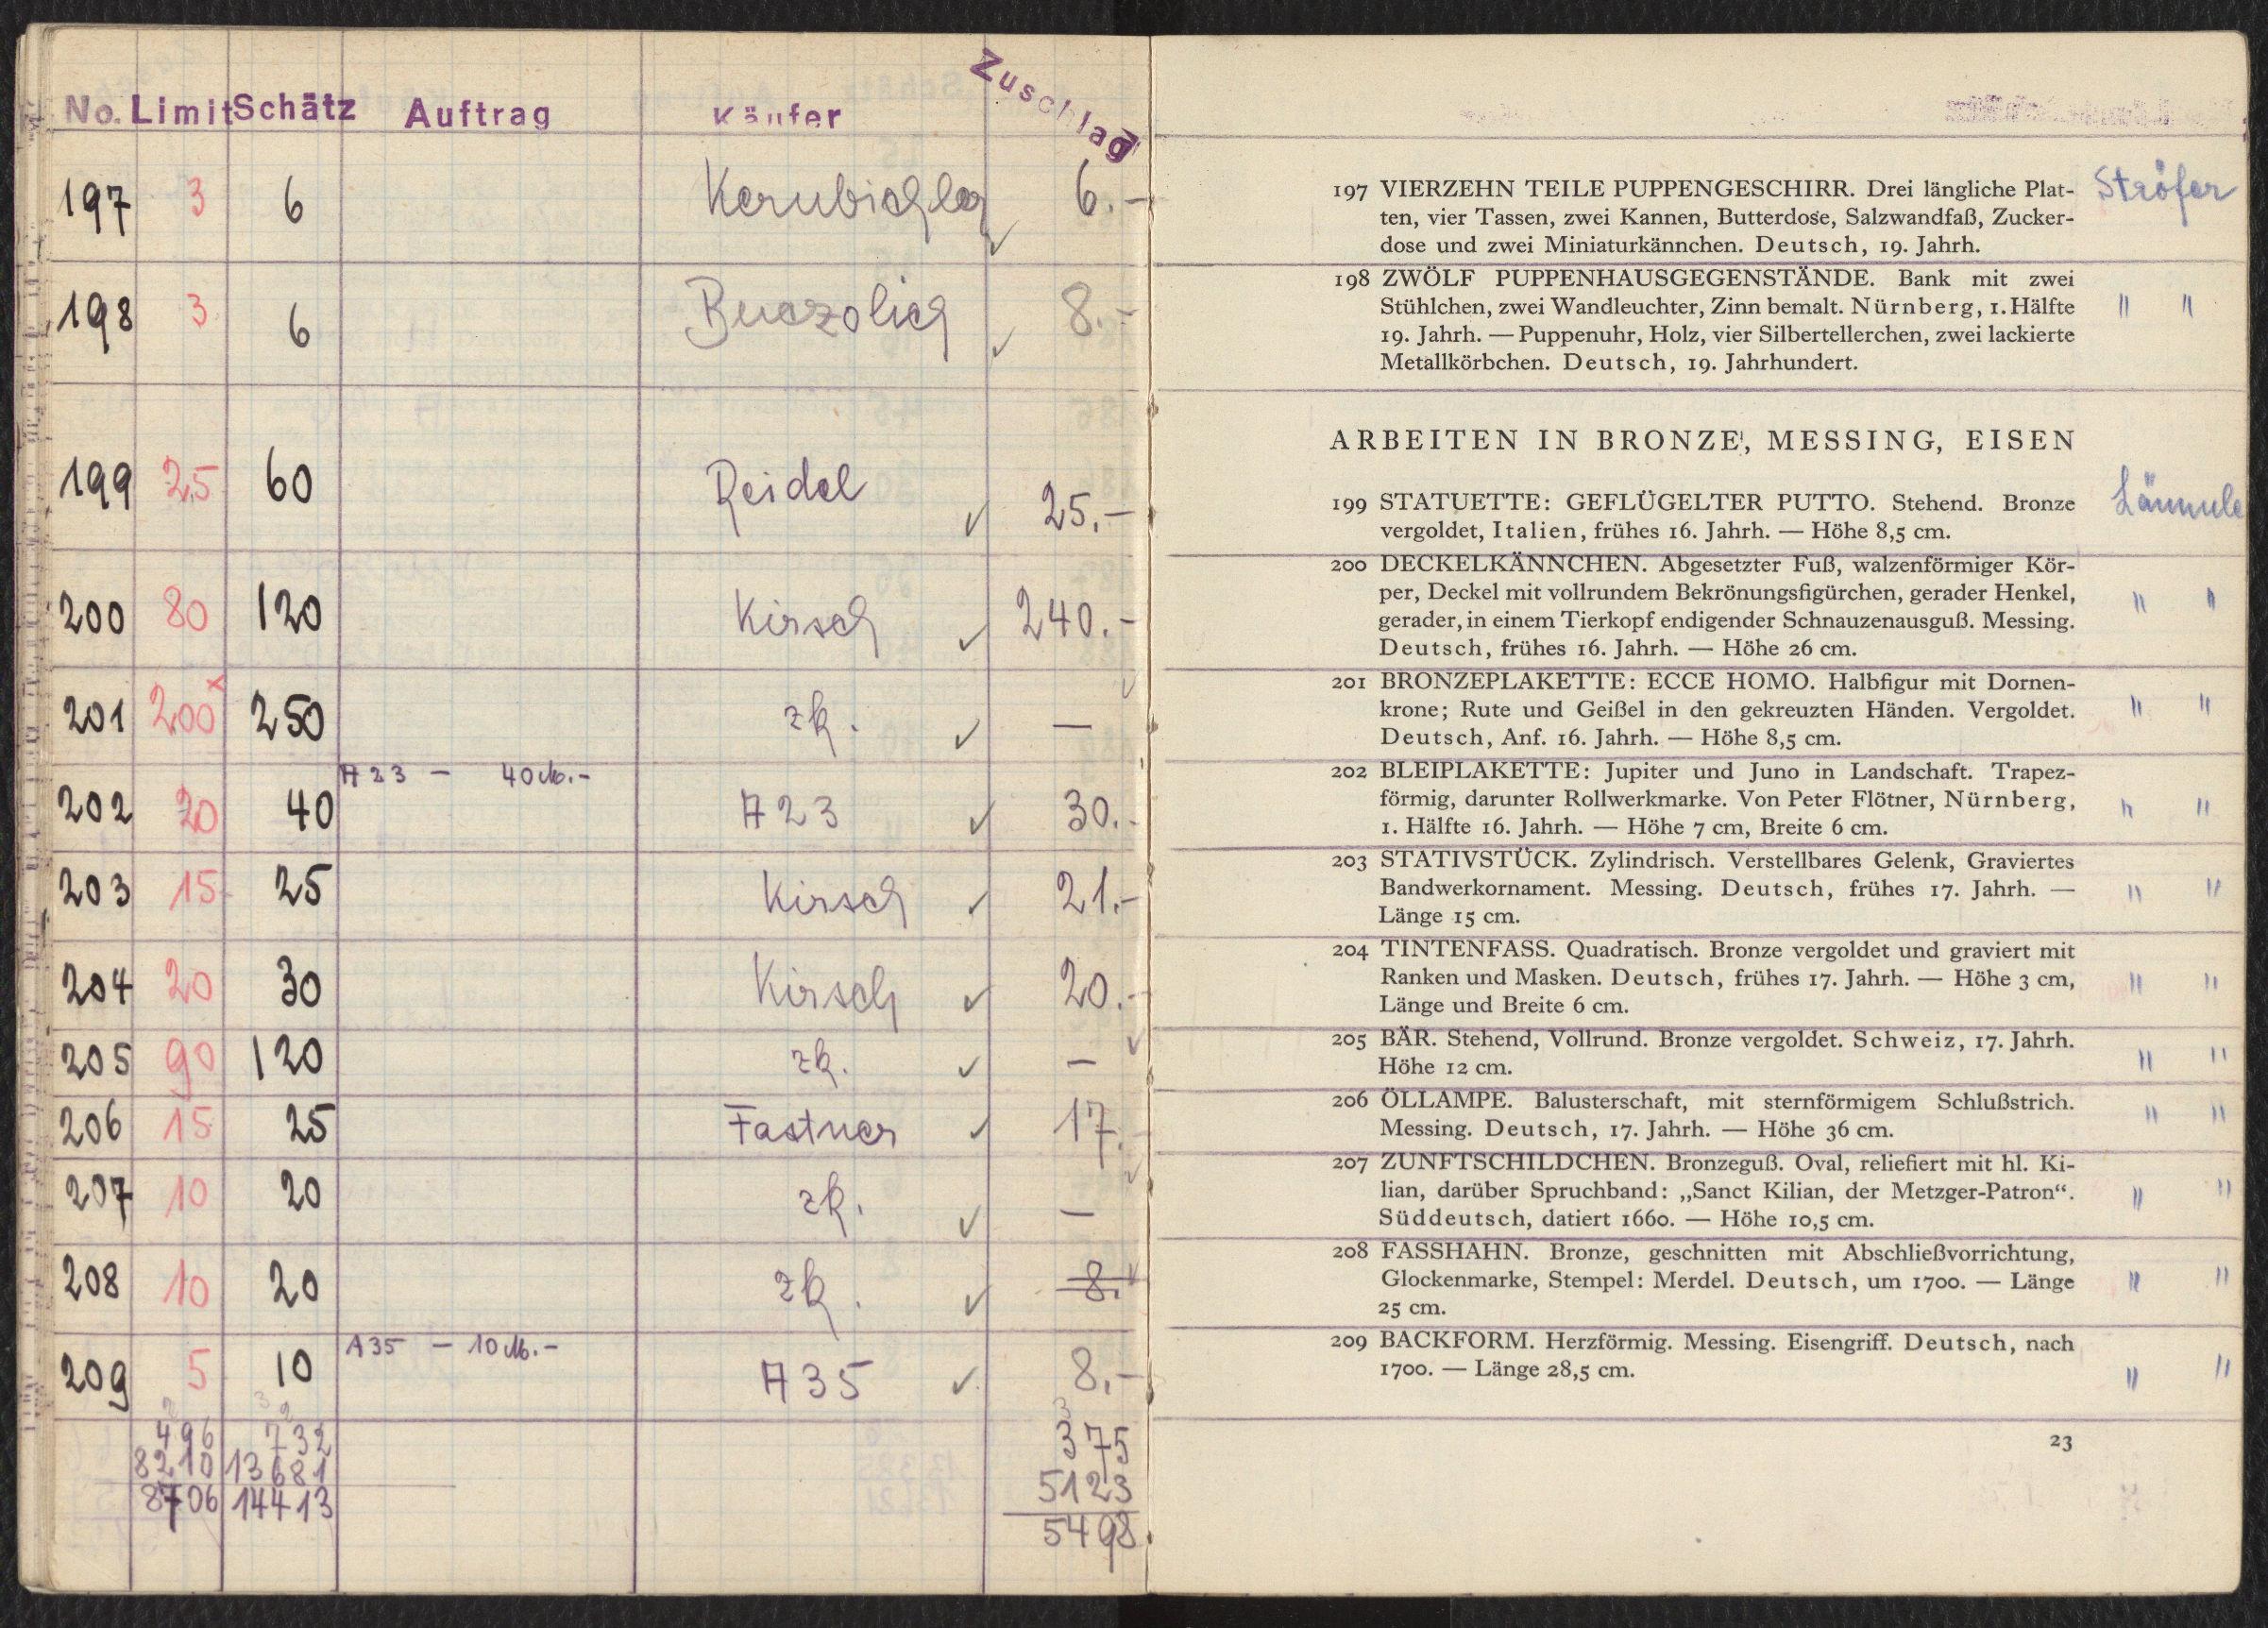 No. Limit Schätz Auftrag Käufer Zuschlag
197 3 6 Kernbichler ✓ 6.–
198 3 6 Buczolich ✓ 8.–
199 25 60 Reidel ✓ 25.–
200 80 120 Kirsch ✓ 240.–
201 200 x 250 zk. ✓ –
A 23 – 40 M.–
202 20 40 A 23 ✓ 30.–
203 15 25 Kirsch ✓ 21.–
204 20 30 Kirsch ✓ 20.–
205 90 120 zk. ✓ –
206 15 25 Fastner ✓ 17.
207 10 20 zk. ✓ –
208 10 20 zk. ✓ 8.
A 35 – 10 M.–
209 5 10 A 35 ✓ 8.–
496 732 375
8210 13681 5123
8706 14413 5498
197 VIERZEHN TEILE PUPPENGESCHIRR. Drei längliche Plat- Ströfer
ten, vier Tassen, zwei Kannen, Butterdose, Salzwandfaß, Zucker-
dose und zwei Miniaturkännchen. Deutsch, 19. Jahrh.
198 ZWÖLF PUPPENHAUSGEGENSTÄNDE. Bank mit zwei
Stühlchen, zwei Wandleuchter, Zinn bemalt. Nürnberg, 1. Hälfte " "
19. Jahrh. — Puppenuhr, Holz, vier Silbertellerchen, zwei lackierte
Metallkörbchen. Deutsch, 19. Jahrhundert.
ARBEITEN IN BRONZE, MESSING, EISEN
199 STATUETTE: GEFLÜGELTER PUTTO. Stehend. Bronze Lämmle
vergoldet, Italien, frühes 16. Jahrh. — Höhe 8,5 cm.
200 DECKELKÄNNCHEN. Abgesetzter Fuß, walzenförmiger Kör-
per, Deckel mit vollrundem Bekrönungsfigürchen, gerader Henkel, " "
gerader, in einem Tierkopf endigender Schnauzenausguß. Messing.
Deutsch, frühes 16. Jahrh. — Höhe 26 cm.
201 BRONZEPLAKETTE: ECCE HOMO. Halbfigur mit Dornen-
krone; Rute und Geißel in den gekreuzten Händen. Vergoldet. " "
Deutsch, Anf. 16. Jahrh. — Höhe 8,5 cm.
202 BLEIPLAKETTE: Jupiter und Juno in Landschaft. Trapez-
förmig, darunter Rollwerkmarke. Von Peter Flötner, Nürnberg, " "
1. Hälfte 16. Jahrh. — Höhe 7 cm, Breite 6 cm.
203 STATIVSTÜCK. Zylindrisch. Verstellbares Gelenk, Graviertes
Bandwerkornament. Messing. Deutsch, frühes 17. Jahrh. — " "
Länge 15 cm.
204 TINTENFASS. Quadratisch. Bronze vergoldet und graviert mit
Ranken und Masken. Deutsch, frühes 17. Jahrh. — Höhe 3 cm, " "
Länge und Breite 6 cm.
205 BÄR. Stehend, Vollrund. Bronze vergoldet. Schweiz, 17. Jahrh.
Höhe 12 cm. " "
206 ÖLLAMPE. Balusterschaft, mit sternförmigem Schlußstrich. " "
Messing. Deutsch, 17. Jahrh. — Höhe 36 cm.
207 ZUNFTSCHILDCHEN. Bronzeguß. Oval, reliefiert mit hl. Ki-
lian, darüber Spruchband: „Sanct Kilian, der Metzger-Patron“. " "
Süddeutsch, datiert 1660. — Höhe 10,5 cm.
208 FASSHAHN. Bronze, geschnitten mit Abschließvorrichtung,
Glockenmarke, Stempel: Merdel. Deutsch, um 1700. — Länge " "
25 cm.
209 BACKFORM. Herzförmig. Messing. Eisengriff. Deutsch, nach
1700. — Länge 28,5 cm. " "
23